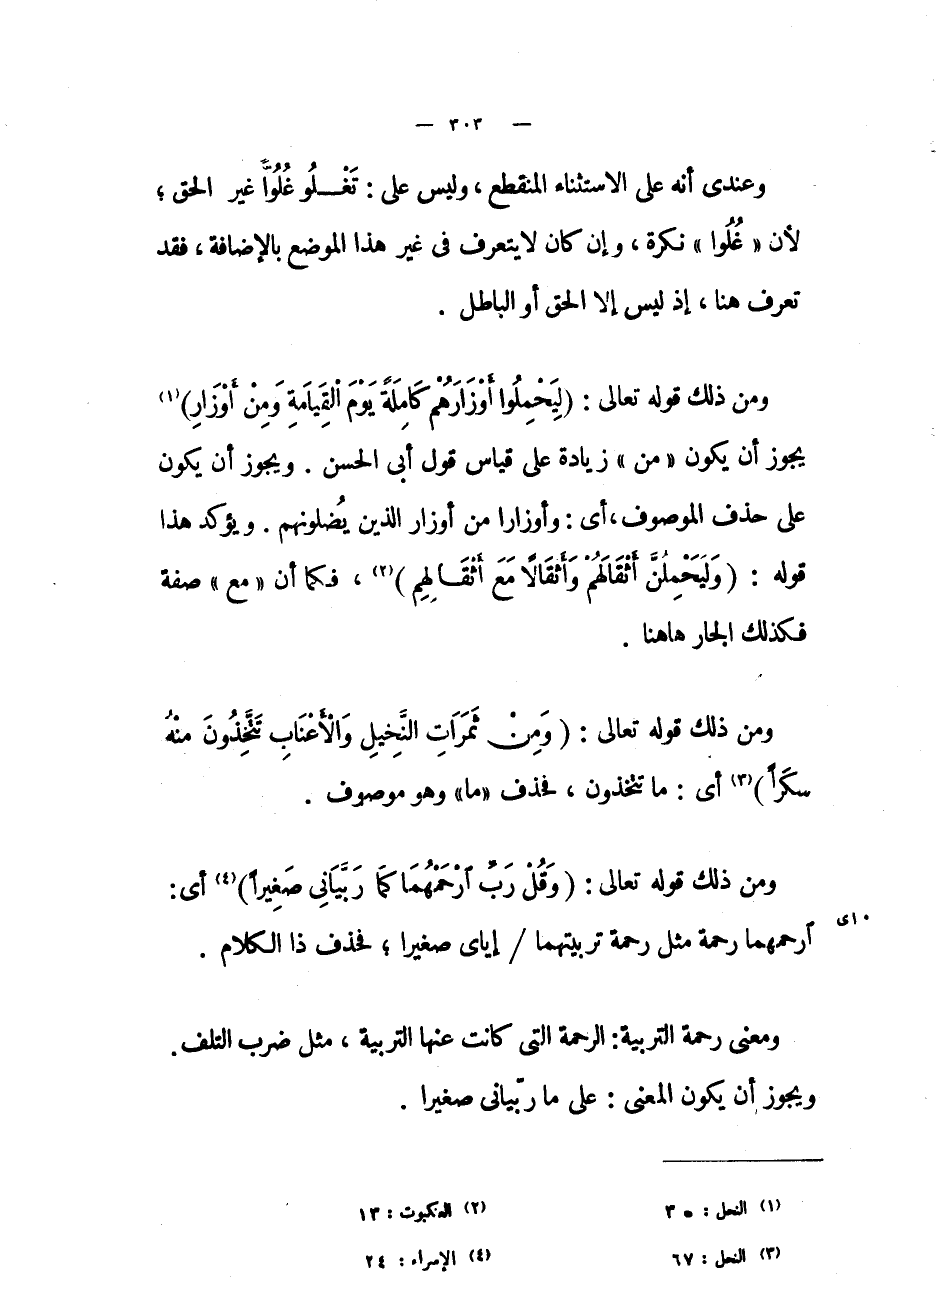 — ٣٠٣ —
وعندى أنه على الاستثناء المنقطع ، وليس على : تَغْلُو غُلُوًّا غير الحق ؛
لأن « غُلُوا » نكرة ، وإن كان لايتعرف فى غير هذا الموضع بالإضافة ، فقد
تعرف هنا ، إذ ليس إلا الحق أو الباطل .
ومن ذلك قوله تعالى : (لِيَحْمِلُوا أَوْزَارَهُمْ كَامِلَةً يَوْمَ الْقِيَامَةِ وَمِنْ أَوْزَارِ)(١)
يجوز أن يكون « من » زيادة على قياس قول أبى الحسن . ويجوز أن يكون
على حذف الموصوف ، أى : وأوزارا من أوزار الذين يُضلونهم . ويؤكد هذا
قوله : ( وَلَيَحْمِلُنَّ أَثْقَالَهُمْ وَأَثْقَالًا مَعَ أَثْقَالِهِم )(٢) ، فكما أن « مع » صفة
فكذلك الجار هاهنا .
ومن ذلك قوله تعالى : ( وَمِنْ ثَمَرَاتِ النَّخِيلِ وَالْأَعْنَابِ تَتَّخِذُونَ مِنْهُ
سَكَراً )(٣) أى : ما تتخذون ، فحذف «ما» وهو موصوف .
ومن ذلك قوله تعالى : ( وَقُلْ رَبِّ ٱرْحَمْهُمَا كَمَا رَبَّيَانِى صَغِيراً )(٤) أى :
ٱرحمهما رحمة مثل رحمة تربيتهما / إياى صغيرا ؛ فحذف ذا الكلام .
١٠ى
ومعنى رحمة التربية : الرحمة التى كانت عنها التربية ، مثل ضرب التلف .
ويجوز أن يكون المعنى : على ما ربّيانى صغيرا .
(١) النحل : ٣٠ (٢) العنكبوت : ١٣
(٣) النحل : ٦٧ (٤) الإسراء : ٢٤